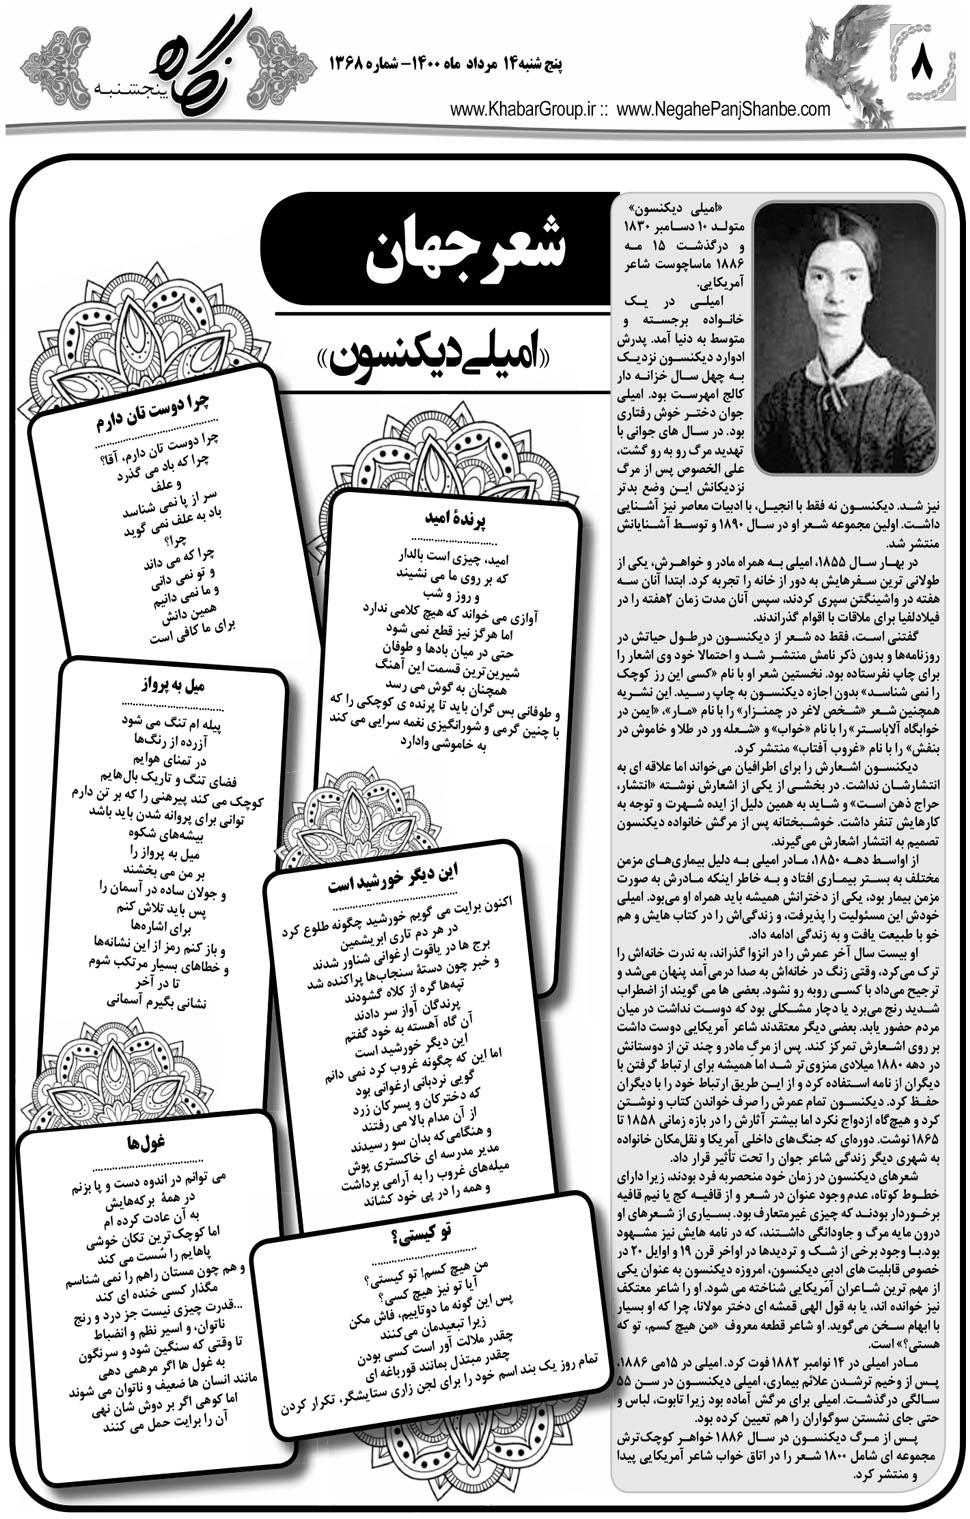 ۸
پنج شنبه۱۴ مرداد ماه ۱۴۰۰- شماره ۱۳۶۸
نگاه
پنجشنبه
www.KhabarGroup.ir :: www.NegahePanjShanbe.com
شعر جهان
«امیلی دیکنسون»
«امیلی دیکنسون»
متولد ۱۰ دسامبر ۱۸۳۰
و درگذشت ۱۵ مه
۱۸۸۶ ماساچوست شاعر
آمریکایی.
امیلی در یک
خانواده برجسته و
متوسط به دنیا آمد. پدرش
ادوارد دیکنسون نزدیک
به چهل سال خزانه دار
کالج امهرست بود. امیلی
جوان دختر خوش رفتاری
بود. در سال های جوانی با
تهدید مرگ رو به رو گشت،
علی الخصوص پس از مرگ
نزدیکانش این وضع بدتر
نیز شد. دیکنسون نه فقط با انجیل، با ادبیات معاصر نیز آشنایی
داشت. اولین مجموعه شعر او در سال ۱۸۹۰ و توسط آشنایانش
منتشر شد.
در بهار سال ۱۸۵۵، امیلی به همراه مادر و خواهرش، یکی از
طولانی ترین سفرهایش به دور از خانه را تجربه کرد. ابتدا آنان سه
هفته در واشینگتن سپری کردند، سپس آنان مدت زمان ۲هفته را در
فیلادلفیا برای ملاقات با اقوام گذراندند.
گفتنی است، فقط ده شعر از دیکنسون در طول حیاتش در
روزنامه‌ها و بدون ذکر نامش منتشر شد و احتمالا خود وی اشعار را
برای چاپ نفرستاده بود. نخستین شعر او با نام «کسی این رز کوچک
را نمی شناسد» بدون اجازه دیکنسون به چاپ رسید. این نشریه
همچنین شعر «شخص لاغر در چمنزار» را با نام «مار»، «ایمن در
خوابگاه آلاباستر» را با نام «خواب» و «شعله ور در طلا و خاموش در
بنفش» را با نام «غروب آفتاب» منتشر کرد.
دیکنسون اشعارش را برای اطرافیان می‌خواند اما علاقه ای به
انتشارشان نداشت. در بخشی از یکی از اشعارش نوشته «انتشار،
حراج ذهن است» و شاید به همین دلیل از ایده شهرت و توجه به
کارهایش تنفر داشت. خوشبختانه پس از مرگش خانواده دیکنسون
تصمیم به انتشار اشعارش می‌گیرند.
از اواسط دهه ۱۸۵۰، مادر امیلی به دلیل بیماری‌های مزمن
مختلف به بستر بیماری افتاد و به خاطر اینکه مادرش به صورت
مزمن بیمار بود، یکی از دخترانش همیشه باید همراه او می‌بود. امیلی
خودش این مسئولیت را پذیرفت، و زندگی‌اش را در کتاب هایش و هم
خو با طبیعت یافت و به زندگی ادامه داد.
او بیست سال آخر عمرش را در انزوا گذراند، به ندرت خانه‌اش را
ترک می‌کرد، وقتی زنگ در خانه‌اش به صدا درمی‌آمد پنهان می‌شد و
ترجیح می‌داد با کسی روبه رو نشود. بعضی ها می گویند از اضطراب
شدید رنج می‌برد یا دچار مشکلی بود که دوست نداشت در میان
مردم حضور یابد. بعضی دیگر معتقدند شاعر آمریکایی دوست داشت
بر روی اشعارش تمرکز کند. پس از مرگ مادر و چند تن از دوستانش
در دهه ۱۸۸۰ میلادی منزوی تر شد اما همیشه برای ارتباط گرفتن با
دیگران از نامه استفاده کرد و از این طریق ارتباط خود را با دیگران
حفظ کرد. دیکنسون تمام عمرش را صرف خواندن کتاب و نوشتن
کرد و هیچ‌گاه ازدواج نکرد اما بیشتر آثارش را در بازه زمانی ۱۸۵۸ تا
۱۸۶۵ نوشت. دوره‌ای که جنگ‌های داخلی آمریکا و نقل‌مکان خانواده
به شهری دیگر زندگی شاعر جوان را تحت تأثیر قرار داد.
شعرهای دیکنسون در زمان خود منحصربه فرد بودند، زیرا دارای
خطوط کوتاه، عدم وجود عنوان در شعر و از قافیه کج یا نیم قافیه
برخوردار بودند که چیزی غیرمتعارف بود. بسیاری از شعرهای او
درون مایه مرگ و جاودانگی داشتند، که در نامه هایش نیز مشهود
بود.با وجود برخی از شک و تردیدها در اواخر قرن ۱۹ و اوایل ۲۰ در
خصوص قابلیت های ادبی دیکنسون، امروزه دیکنسون به عنوان یکی
از مهم ترین شاعران آمریکایی شناخته می شود. او را شاعر معتکف
نیز خوانده اند، یا به قول الهی قمشه ای دختر مولانا، چرا که او بسیار
با ابهام سخن می‌گوید. او شاعر قطعه معروف «من هیچ کسم، تو که
هستی؟» است.
مادر امیلی در ۱۴ نوامبر ۱۸۸۲ فوت کرد. امیلی در ۱۵می ۱۸۸۶،
پس از وخیم ترشدن علائم بیماری، امیلی دیکنسون در سن ۵۵
سالگی درگذشت. امیلی برای مرگش آماده بود زیرا تابوت، لباس و
حتی جای نشستن سوگواران را هم تعیین کرده بود.
پس از مرگ دیکنسون در سال ۱۸۸۶ خواهر کوچک‌ترش
مجموعه ای شامل ۱۸۰۰ شعر را در اتاق خواب شاعر آمریکایی پیدا
و منتشر کرد.
پرندهٔ امید
امید، چیزی است بالدار
که بر روی ما می نشیند
و روز و شب
آوازی می خواند که هیچ کلامی ندارد
اما هرگز نیز قطع نمی شود
حتی در میان بادها و طوفان
شیرین‌ترین قسمت این آهنگ
همچنان به گوش می رسد
و طوفانی بس گران باید تا پرنده ی کوچکی را که
با چنین گرمی و شورانگیزی نغمه سرایی می کند
به خاموشی وادارد
این دیگر خورشید است
اکنون برایت می گویم خورشید چگونه طلوع کرد
در هر دم تاری ابریشمین
برج ها در یاقوت ارغوانی شناور شدند
و خبر چون دستهٔ سنجاب‌ها پراکنده شد
تپه‌ها گره از کلاه گشودند
پرندگان آواز سر دادند
آن گاه آهسته به خود گفتم
این دیگر خورشید است
اما این که چگونه غروب کرد نمی دانم
گویی نردبانی ارغوانی بود
که دخترکان و پسرکان زرد
از آن مدام بالا می رفتند
و هنگامی‌که بدان سو رسیدند
مدیر مدرسه ای خاکستری پوش
میله‌های غروب را به آرامی برداشت
و همه را در پی خود کشاند
تو کیستی؟
من هیچ کسم! تو کیستی؟
آیا تو نیز هیچ کسی؟
پس این گونه ما دوتاییم، فاش مکن
زیرا تبعیدمان می‌کنند
چقدر ملالت آور است کسی بودن
چقدر مبتذل بمانند قورباغه ای
تمام روز یک بند اسم خود را برای لجن زاری ستایشگر، تکرار کردن
چرا دوست تان دارم
چرا دوست تان دارم، آقا؟
چرا که باد می گذرد
و علف
سر از پا نمی شناسد
باد به علف نمی گوید
چرا؟
چرا که می داند
و تو نمی دانی
و ما نمی دانیم
همین دانش
برای ما کافی است
میل به پرواز
پیله ام تنگ می شود
آزرده از رنگ‌ها
در تمنای هوایم
فضای تنگ و تاریک بال‌هایم
کوچک می کند پیرهنی را که بر تن دارم
توانی برای پروانه شدن باید باشد
بیشه‌های شکوه
میل به پرواز را
بر من می بخشند
و جولان ساده در آسمان را
پس باید تلاش کنم
برای اشاره‌ها
و باز کنم رمز از این نشانه‌ها
و خطاهای بسیار مرتکب شوم
تا در آخر
نشانی بگیرم آسمانی
غول‌ها
می توانم در اندوه دست و پا بزنم
در همهٔ برکه‌هایش
به آن عادت کرده ام
اما کوچک‌ترین تکان خوشی
پاهایم را سُست می کند
و هم چون مستان راهم را نمی شناسم
مگذار کسی خنده ای کند
...قدرت چیزی نیست جز درد و رنج
ناتوان، و اسیر نظم و انضباط
تا وقتی که سنگین شود و سرنگون
به غول ها اگر مرهمی دهی
مانند انسان ها ضعیف و ناتوان می شوند
اما کوهی اگر بر دوش شان نهی
آن را برایت حمل می کنند